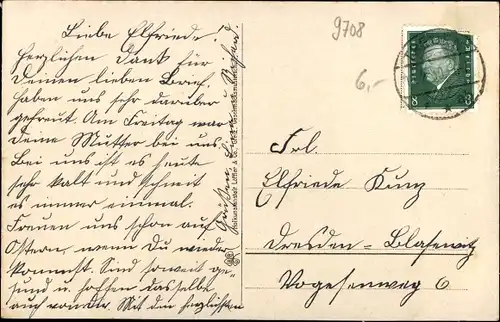 Liebe Elfriede!
Herzlichen Dank für
Deinen lieben Brief.
Haben uns sehr darüber
gefreut. Am Freitag war
Deine Mutter bei uns.
Bei uns ist es heute
sehr kalt und schneit
es immer einmal.
Freuen uns schon auf
Ostern, wenn Du wieder
kommst. Sind soweit ge-
sund u. hoffen dasselbe
auch von Dir. Mit den herzlichsten
Grüßen
9708
6,-
8 8
Frl.
Elfriede Kunz
Dresden-Blasewitz
Vogesenweg 6